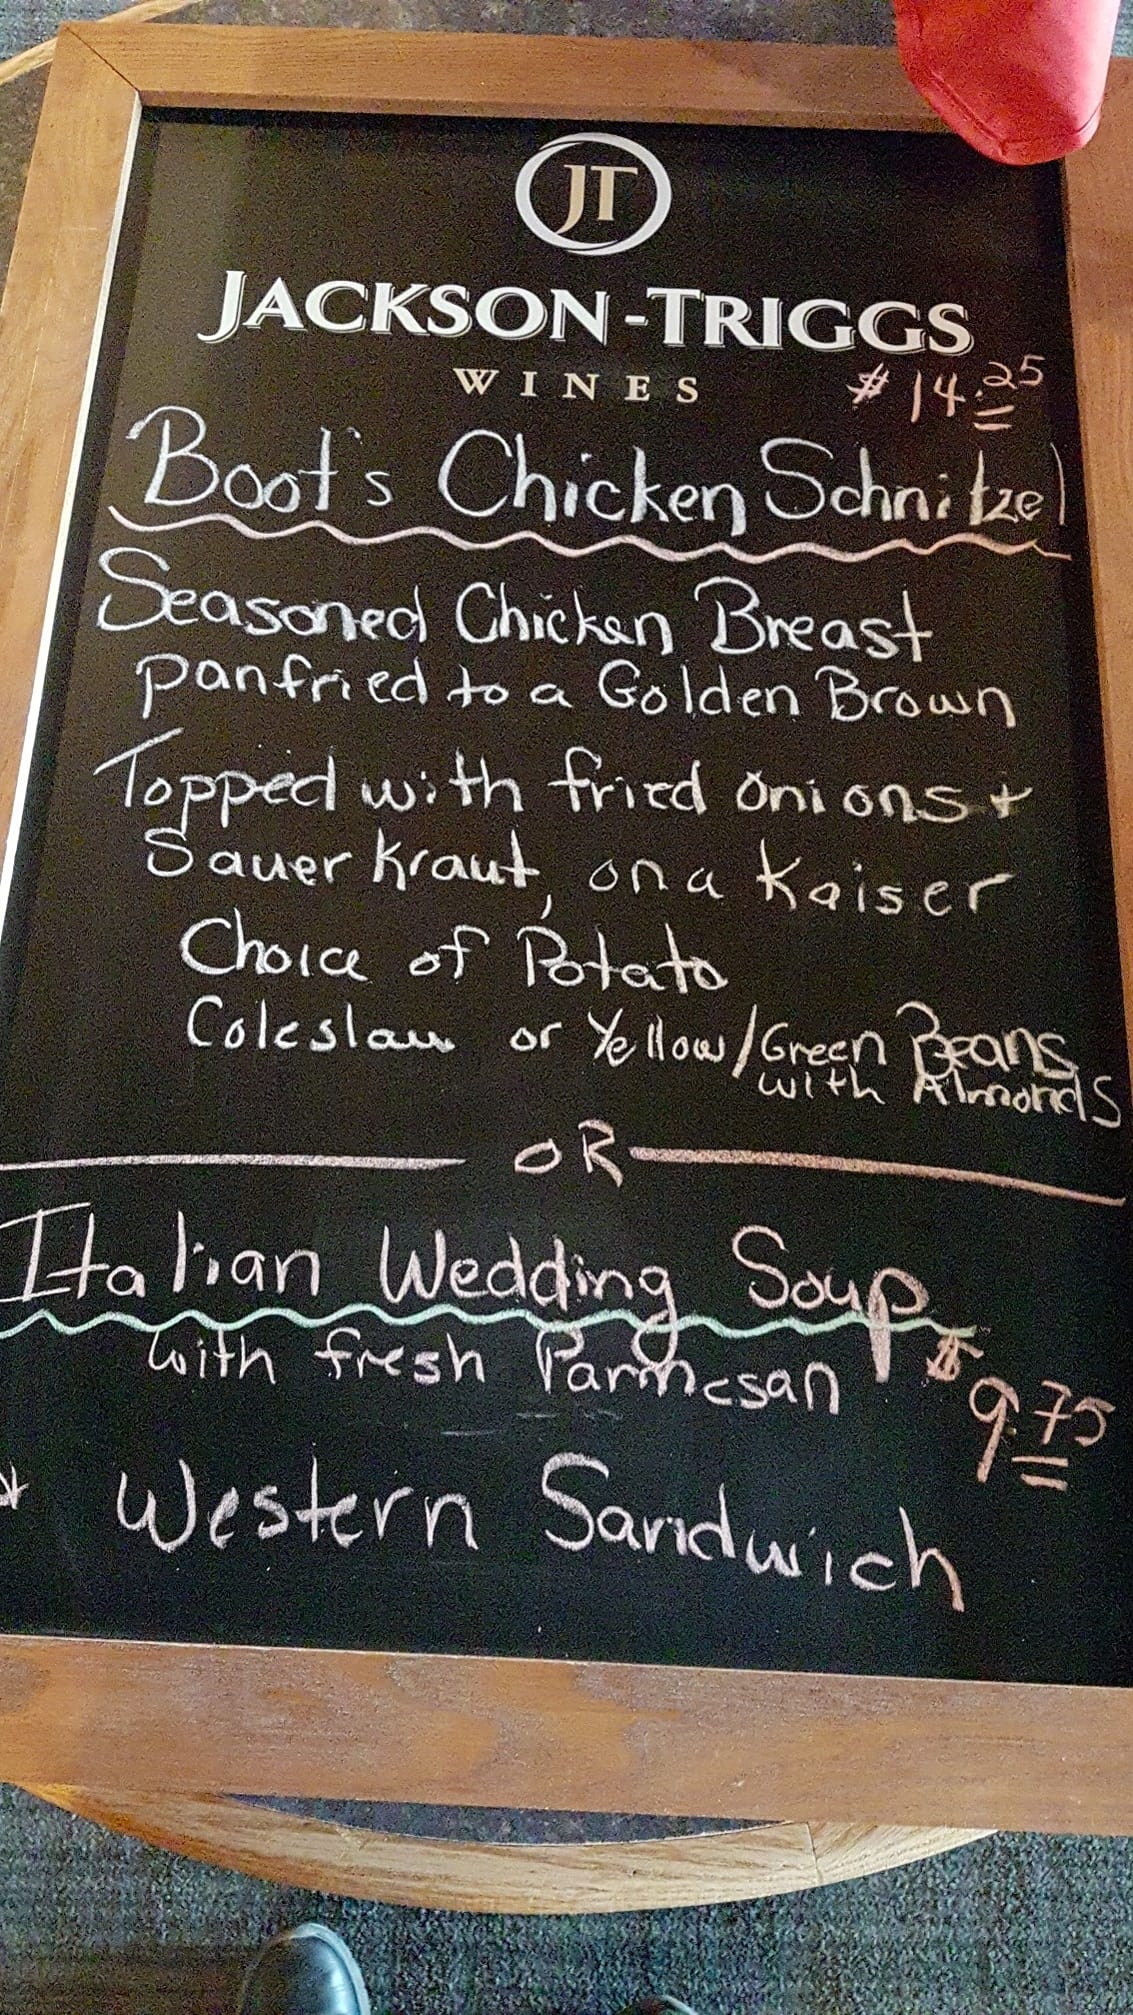 JT
JACKSON-TRIGGS
WINES
$14.25
Boot's Chicken Schnitzel
Seasoned Chicken Breast
panfried to a Golden Brown
Topped with fried onions +
Sauer Kraut, on a Kaiser
Choice of Potato
Coleslaw or Yellow/Green Beans
with Almonds
OR
Italian Wedding Soup
with fresh Parmesan
$9.75
* Western Sandwich